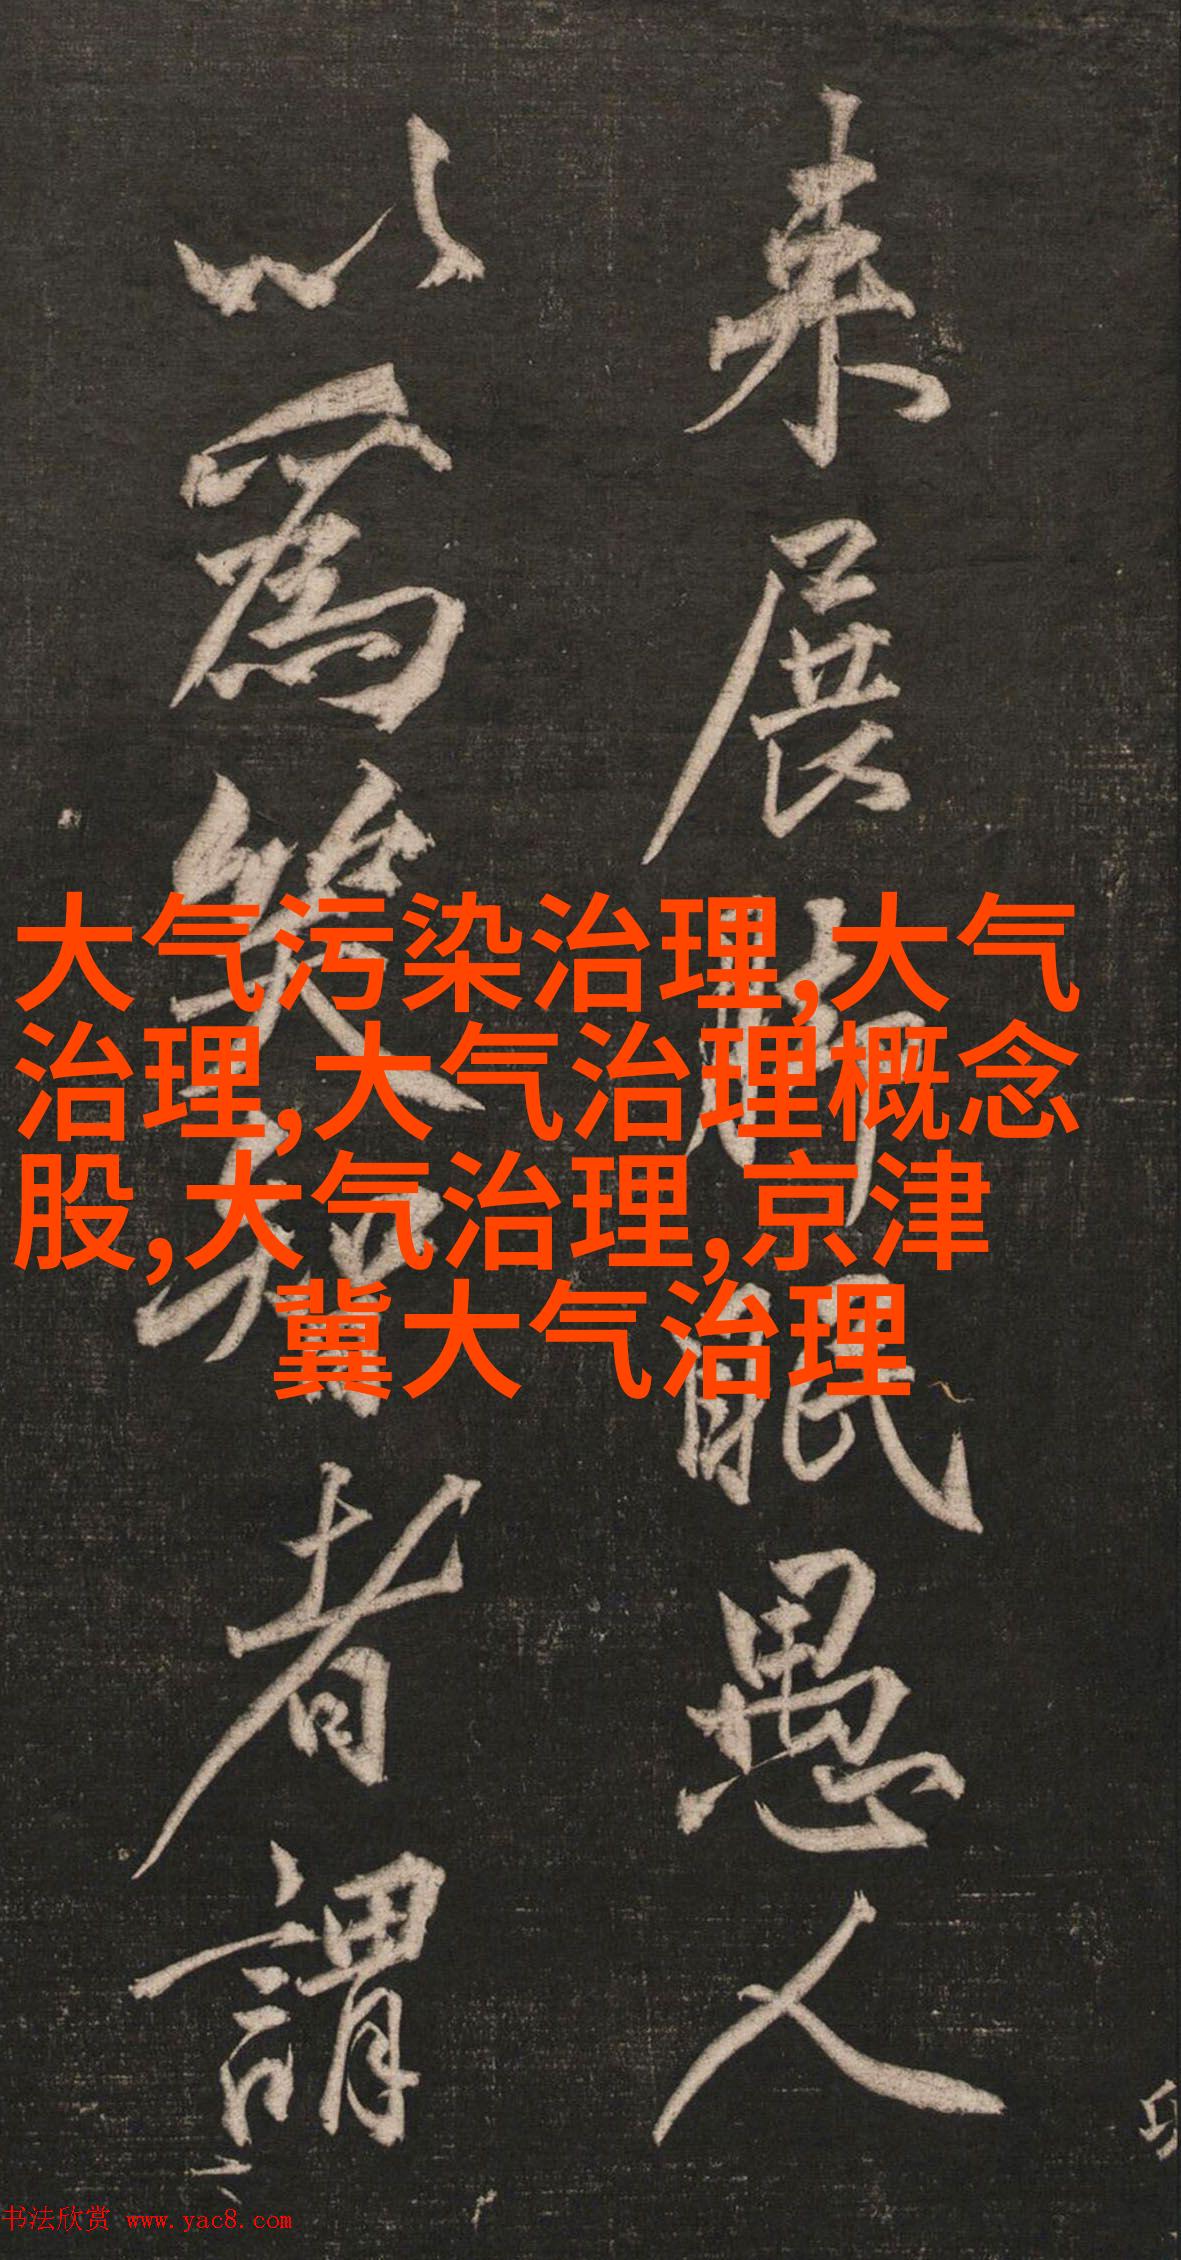 来展脚眠愚人
以為笑智者謂
大气污染治理,大气
治理,大气治理概念
股,大气治理,京津
冀大气治理
书法欣赏 www.yac8.com